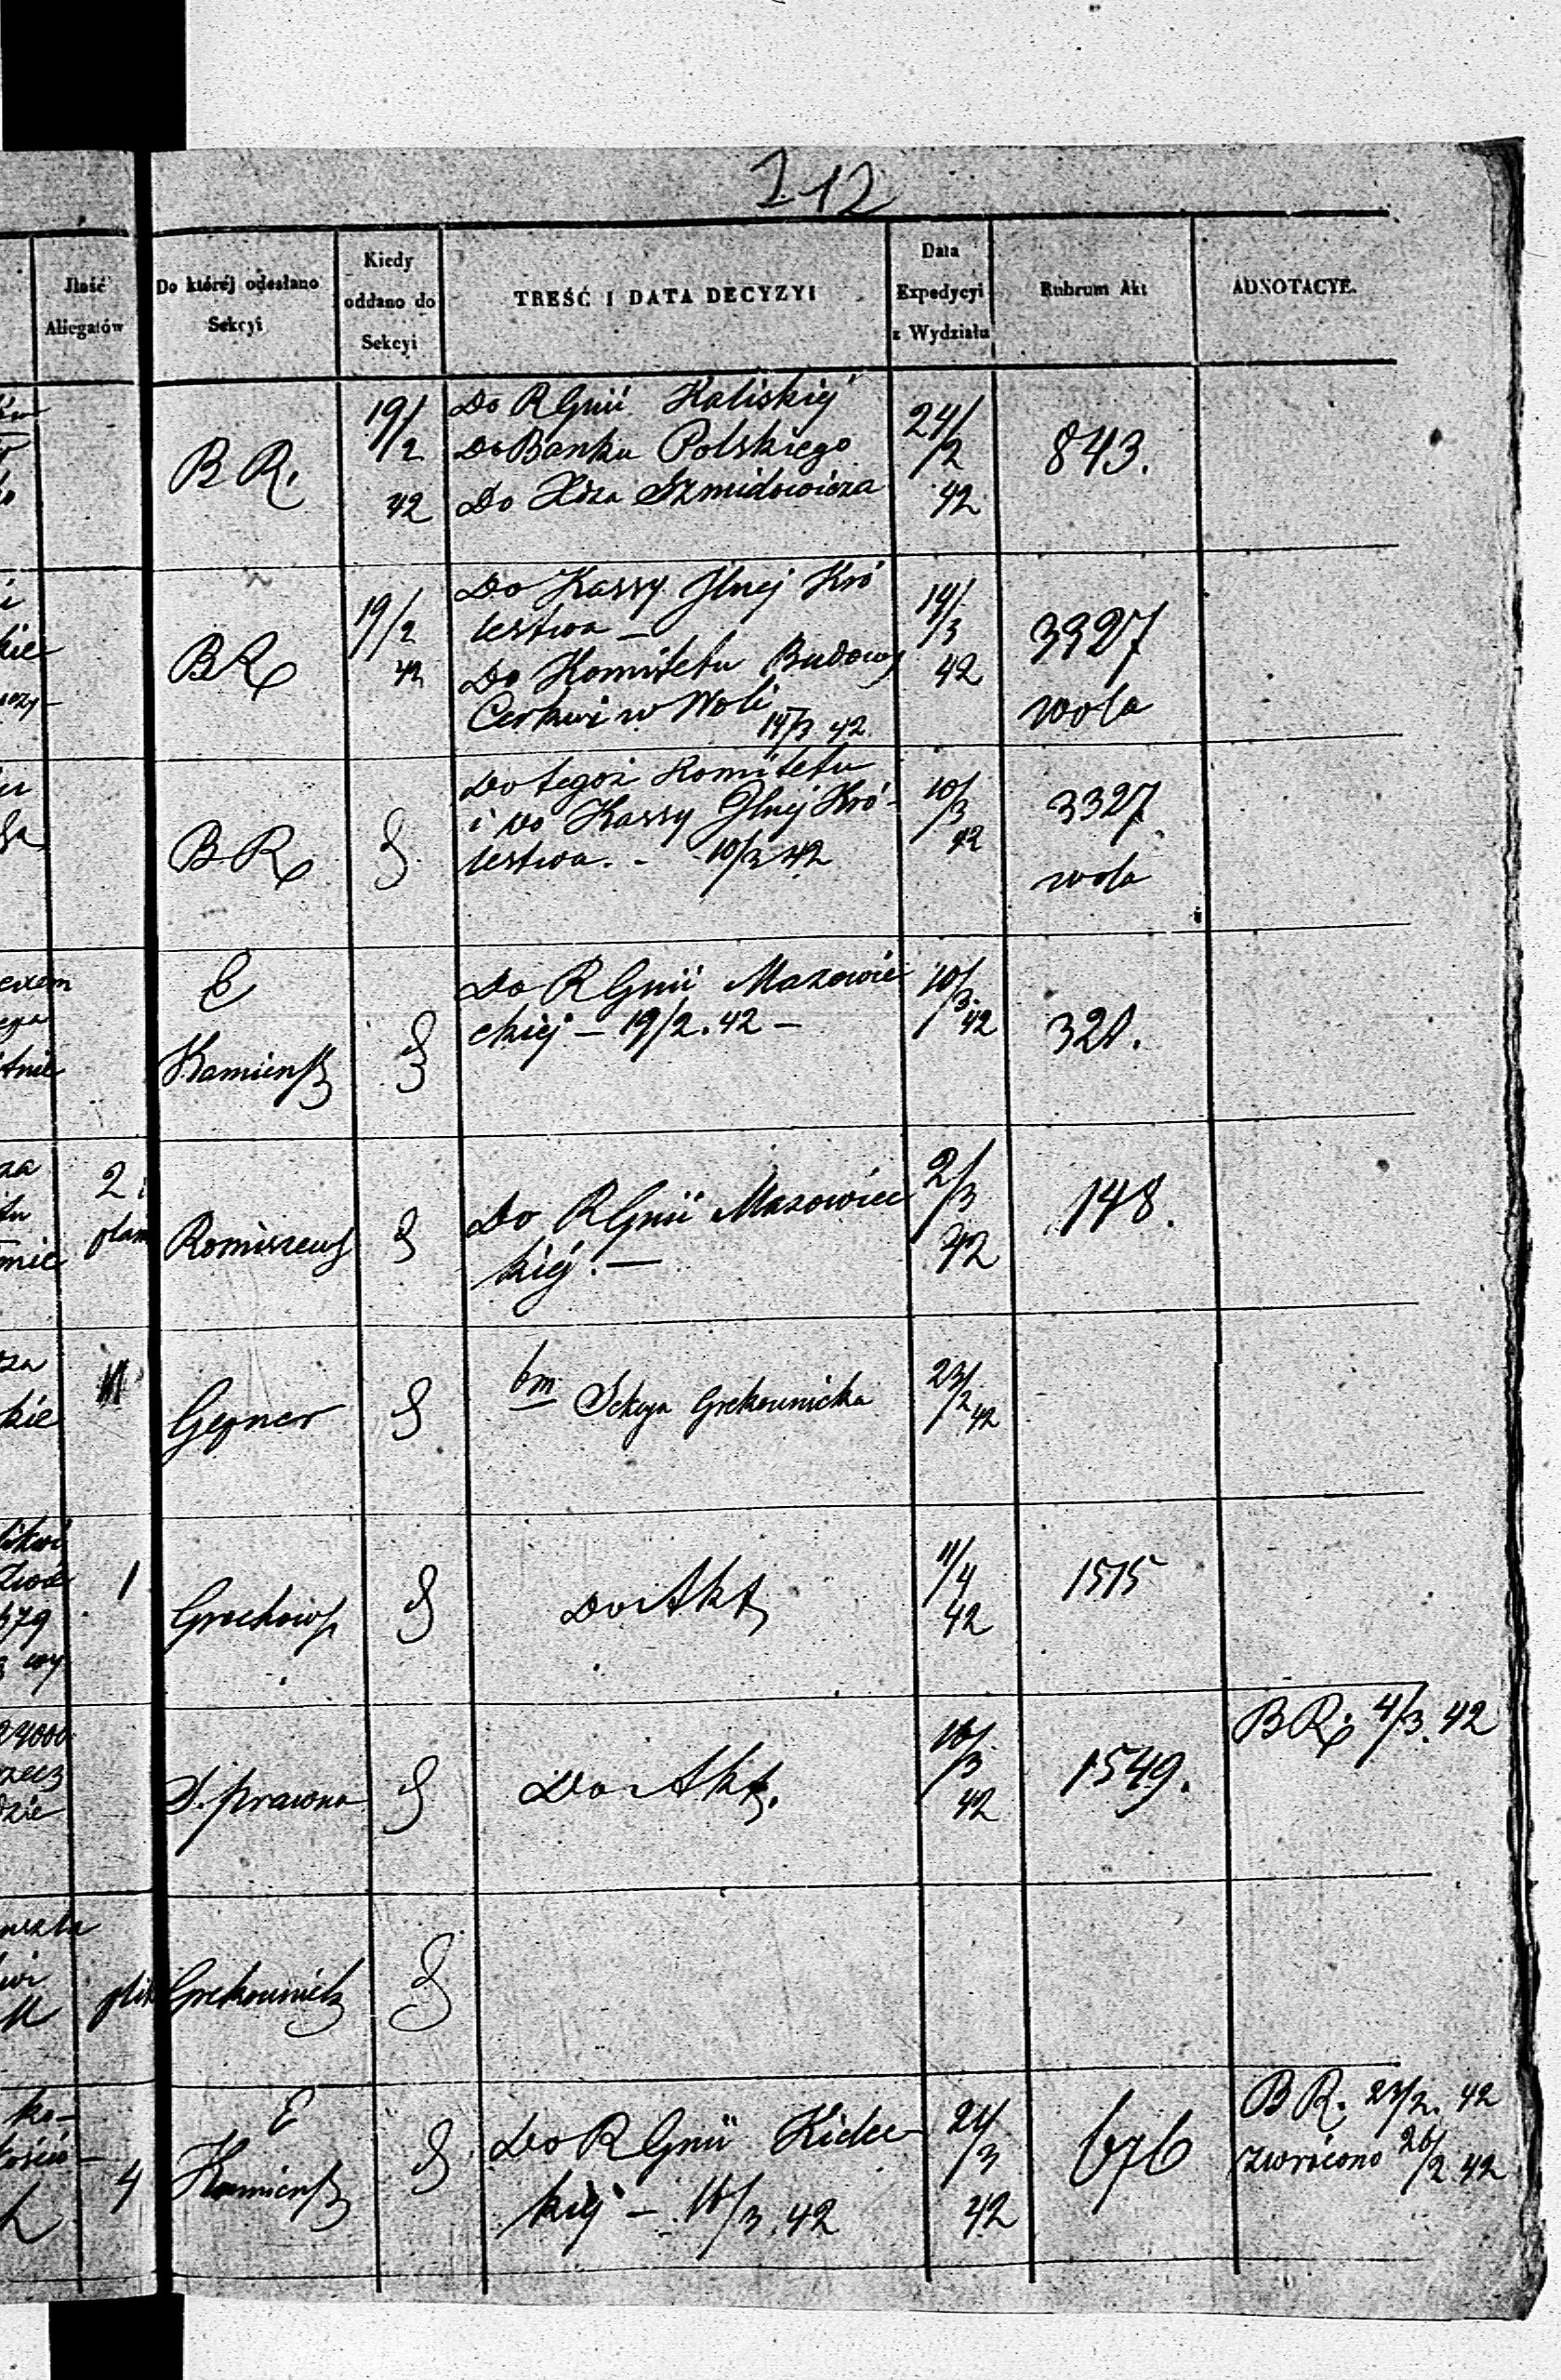 212
Ilość
Allegatów
Do któréj odesłano
Sekcyi
Kiedy
oddano do
Sekcyi
TREŚĆ I DATA DECYZYI
Data
Expedycyi
z Wydziału
Rubrum Akt
ADNOTACYE.
B R.
19/2
42
Do R Gnii Kaliskiej
Do Banku Polskiego
Do Xdza Szmidowicza
24/2
42
843.
BR
19/2
42
Do Kassy Glnej Kró
lestwa —
Do Komitetu Budowy
Cerkwi w Woli
14/3 42
14/3
42
3327
wola
BR
Do tegoż Komitetu
i do Kassy Glnej Kró-
lestwa. - 10/3 42
10/3
42
3327
wola
Kamiensk
Do R Gnii Mazowie
ckiej — 19/2. 42 —
10/3.
42
321.
2
Romiszews
Do R Gnii Mazowiec
kiej. —
2/3
42
148.
Gepner
bm Sekcya Grekounicka
23/2
42
1
Grochows
Do Akt
11/4
42
1515
S. prawna
Do Akt.
16/3
42
1549.
BR. 4/3. 42
plik
Grekounick
4
E
Kamiensk
Do R Gnii Kielec
kiej — 16/3. 42
24/3
42
676
B R. 23/2. 42
zwrócono 26/2 42